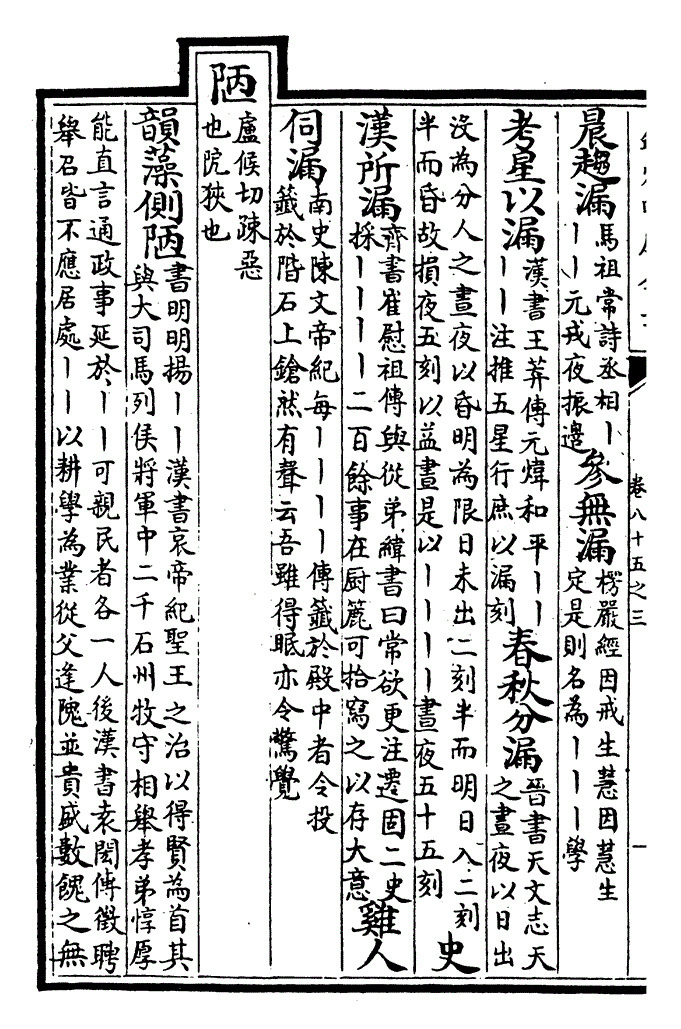 卷八十五之三
一
晨趨漏
馬祖常詩丞相｜
｜｜元戎夜振邊
參無漏
楞嚴經因戒生慧因慧生
定是則名為｜｜｜學
考星以漏
漢書王莽傳元煒和平｜｜
｜｜注推五星行庶以漏刻
春秋分漏
晉書天文志天
之晝夜以日出
没為分人之晝夜以昏明為限日未出二刻半而明日入二刻
半而昏故損夜五刻以益晝是以｜｜｜｜晝夜五十五刻
史
漢所漏
齊書崔慰祖傳與從弟緯書曰常欲更注遷固二史
採｜｜｜｜二百餘事在厨簏可拾寫之以存大意
雞人
伺漏
南史陳文帝紀每｜｜｜｜傳籤於殿中者令投
籤於階石上鎗然有聲云吾雖得眠亦令驚覺
陋
盧候切疎惡
也阨狹也
韻藻側陋
書明明揚｜｜漢書哀帝紀聖王之治以得賢為首其
與大司馬列侯將軍中二千石州牧守相舉孝弟惇厚
能直言通政事延於｜｜可親民者各一人後漢書袁閎傳徵聘
舉召皆不應居處｜｜以耕學為業從父逢隗並貴盛數餽之無